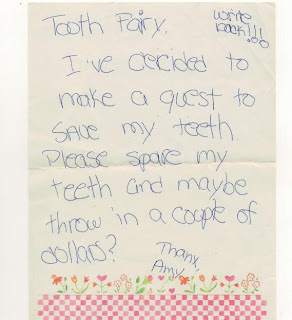 Tooth Fairy,
write
back!!!
I've decided to
make a quest to
save my teeth
Please spare my
teeth and maybe
throw in a couple of
dollars?
Thanx,
Amy